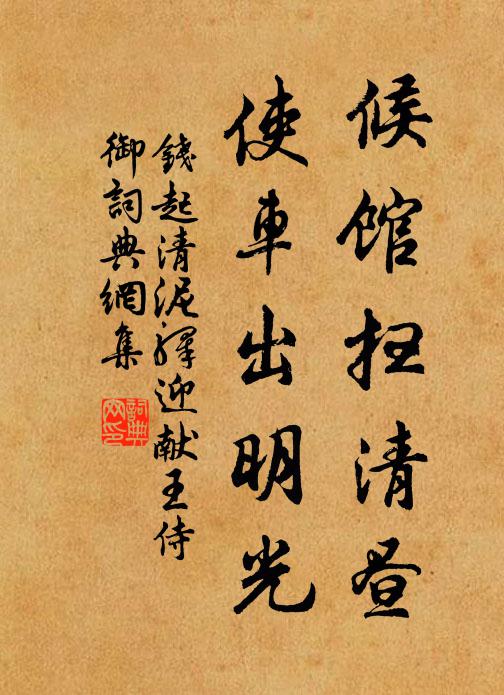 候馆扫清昼
使車出明光
錢起清泥驛迎献王侍
御詞典網集
詞典
网印